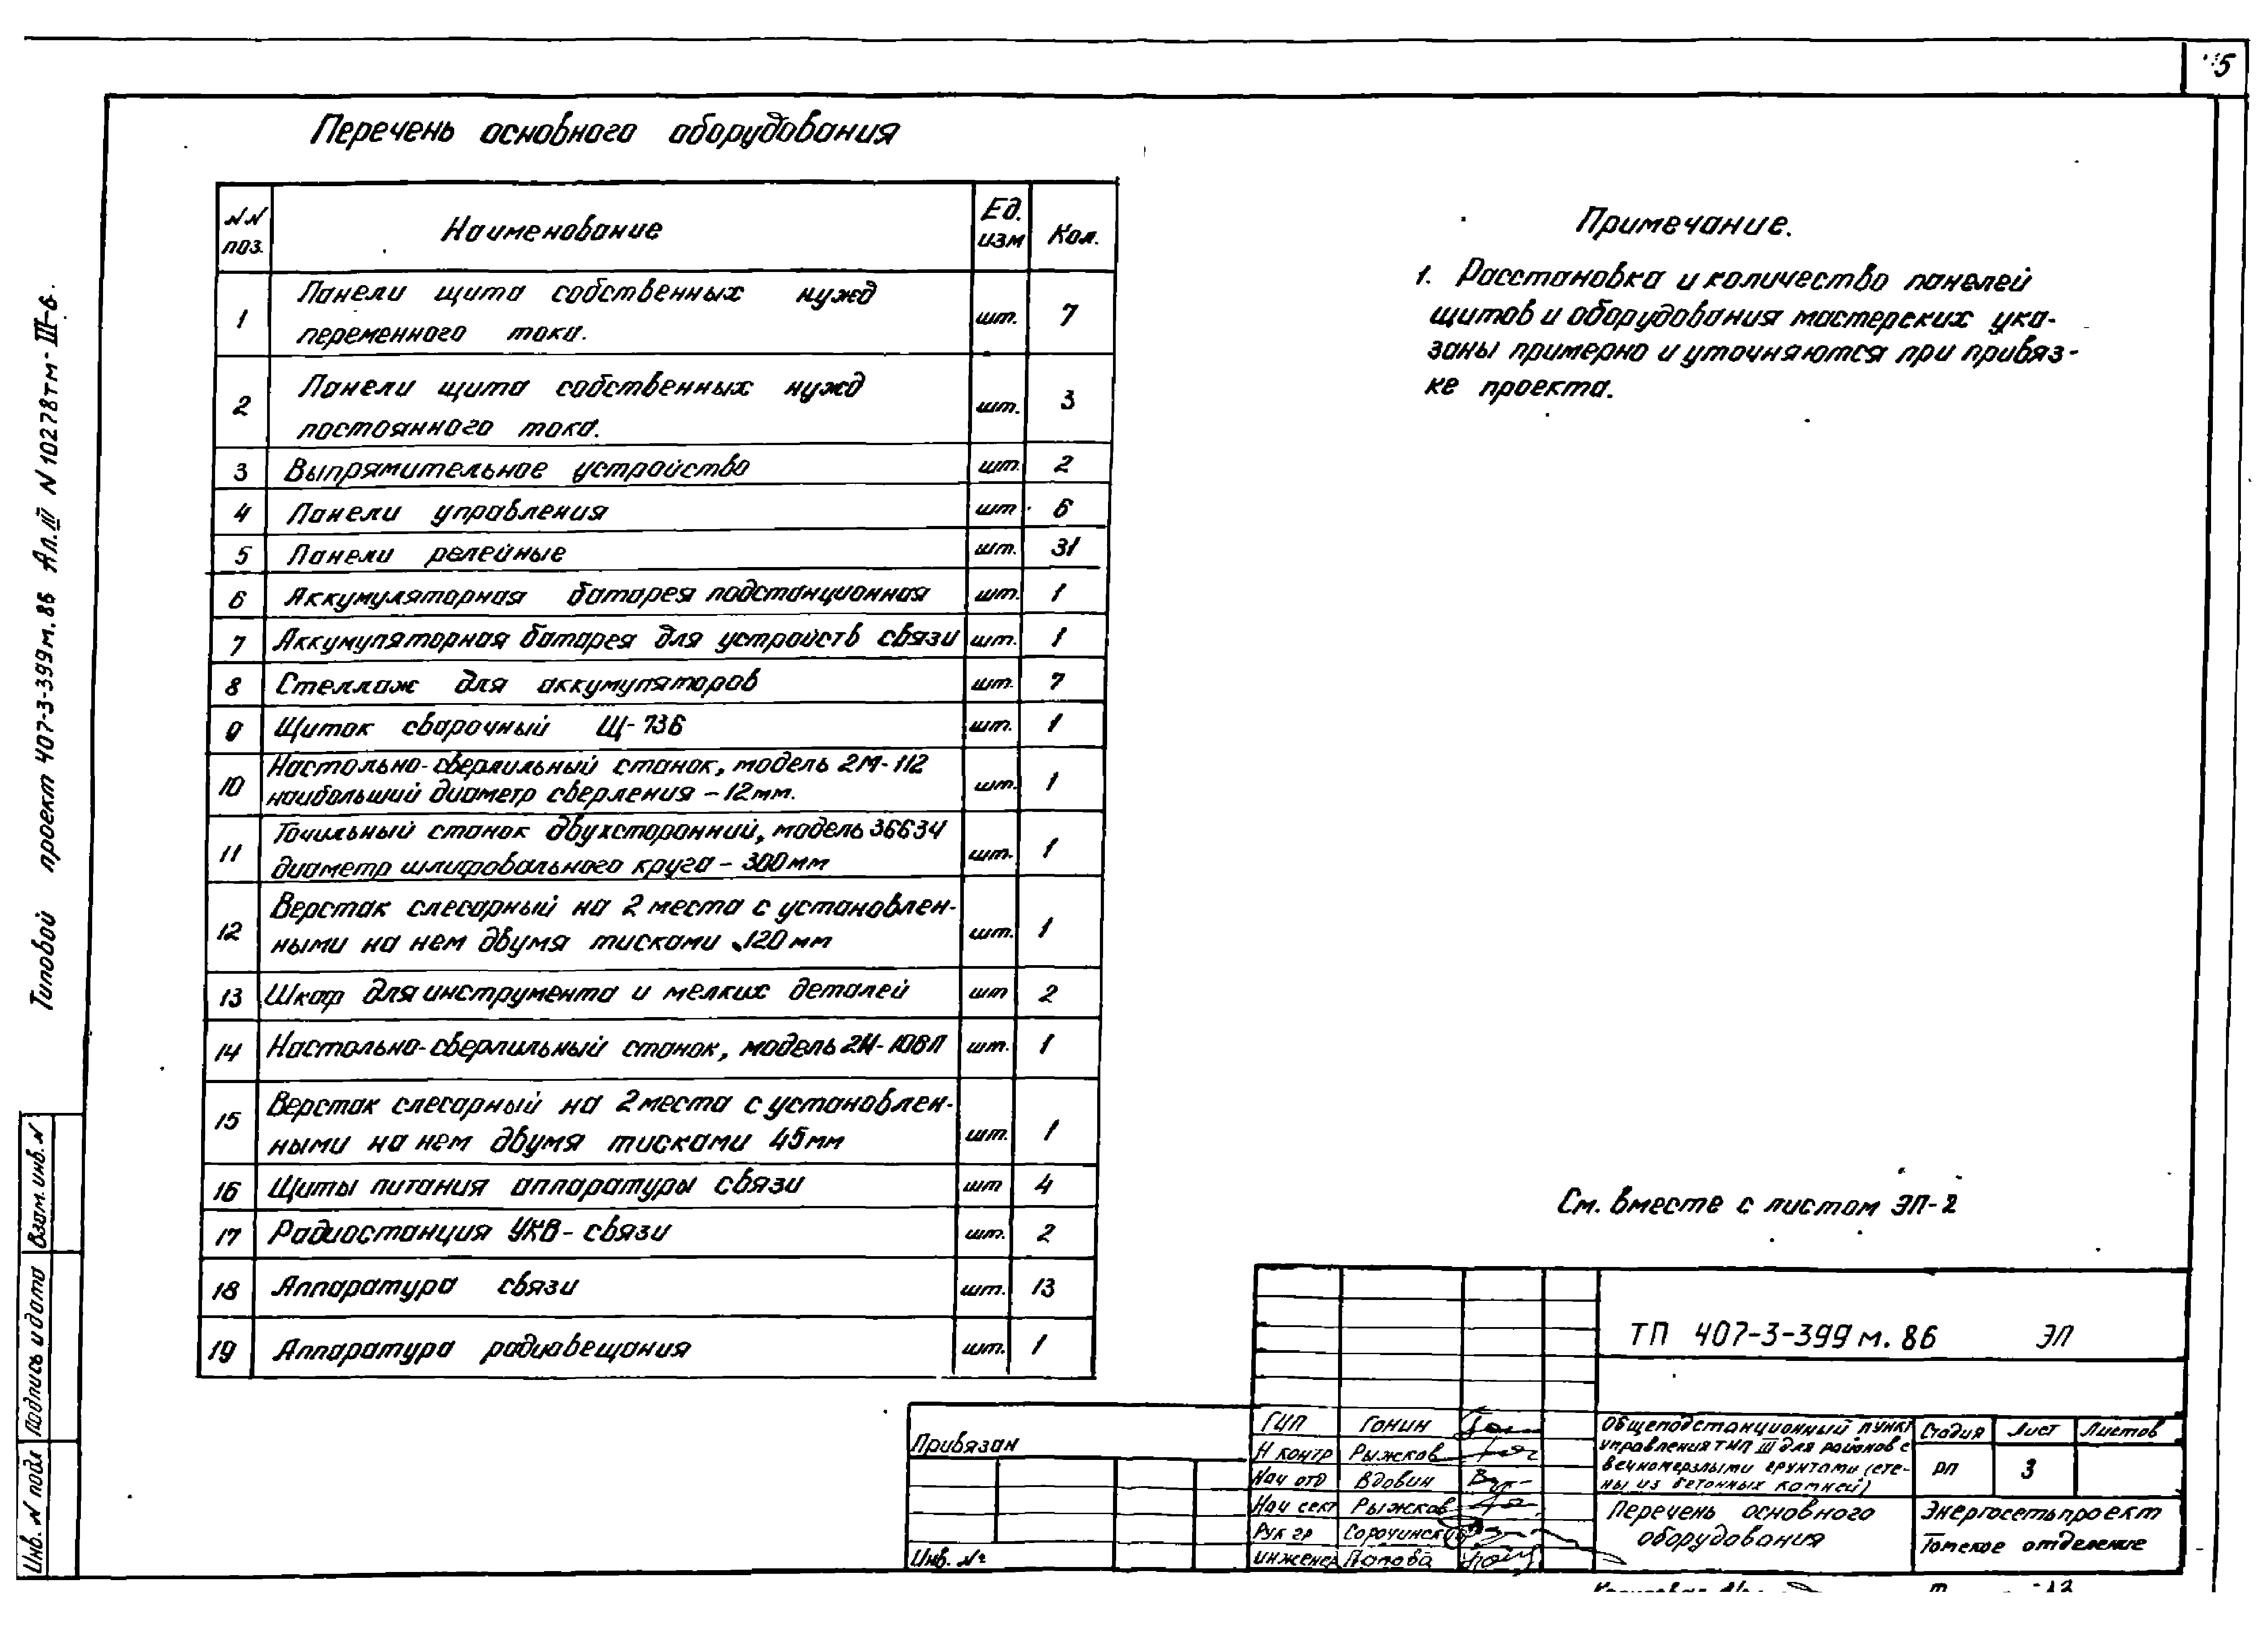 5
Перечень основного оборудования
NN поз. Наименование Ед. изм Кол.
1 Панели щита собственных нужд
переменного тока. шт. 7
2 Панели щита собственных нужд
постоянного тока. шт. 3
3 Выпрямительное устройство шт. 2
4 Панели управления шт. 6
5 Панели релейные шт. 31
6 Аккумуляторная батарея подстанционная шт. 1
7 Аккумуляторная батарея для устройств связи шт. 1
8 Стеллаж для аккумуляторов шт. 7
9 Щиток сварочный Щ-736 шт. 1
10 Настольно-сверлильный станок, модель 2М-112
наибольший диаметр сверления - 12мм. шт. 1
11 Точильный станок двухсторонний, модель 36634
диаметр шлифовального круга - 300мм шт. 1
12 Верстак слесарный на 2 места с установлен-
ными на нем двумя тисками 120мм шт. 1
13 Шкаф для инструмента и мелких деталей шт 2
14 Настольно-сверлильный станок, модель шт. 1
15 Верстак слесарный на 2 места с установлен-
ными на нем двумя тисками 45мм шт. 1
16 Щиты питания аппаратуры связи шт 4
17 Радиостанция УКВ-связи шт. 2
18 Аппаратура связи шт. 13
19 Аппаратура радиовещания шт. 1
Примечание.
1. Расстановка и количество панелей
щитов и оборудования мастерских ука-
заны примерно и уточняются при привяз-
ке проекта.
См. вместе с листом ЭП-2
ТП 407-3-399м.86 ЭП
Привязан
Инв. №
ГИП Гонин
Н контр Рыжков
Нач отд Вдовин
Нач сект Рыжков
Рук гр Сорочинский
инженер Попова
Общеподстанционный пункт
управления ТМП III для районов с
вечномерзлыми грунтами (сте-
ны из бетонных камней)
Стадия Лист Листов
РП 3
Перечень основного
оборудования
Энергосетьпроект
Томское отделение
Типовой проект 407-3-399м.86 Ал.III N 10278тм-III-6
Взам. инв. N
Подпись и дата
Инв. N подл